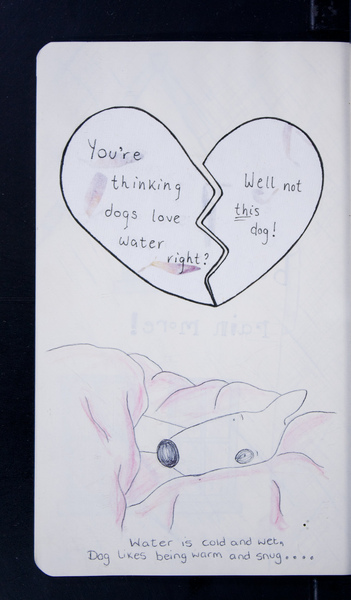 You're
thinking
dogs love
water
right?
Well not
this
dog!
rain more!
Water is cold and wet,
Dog likes being warm and snug....